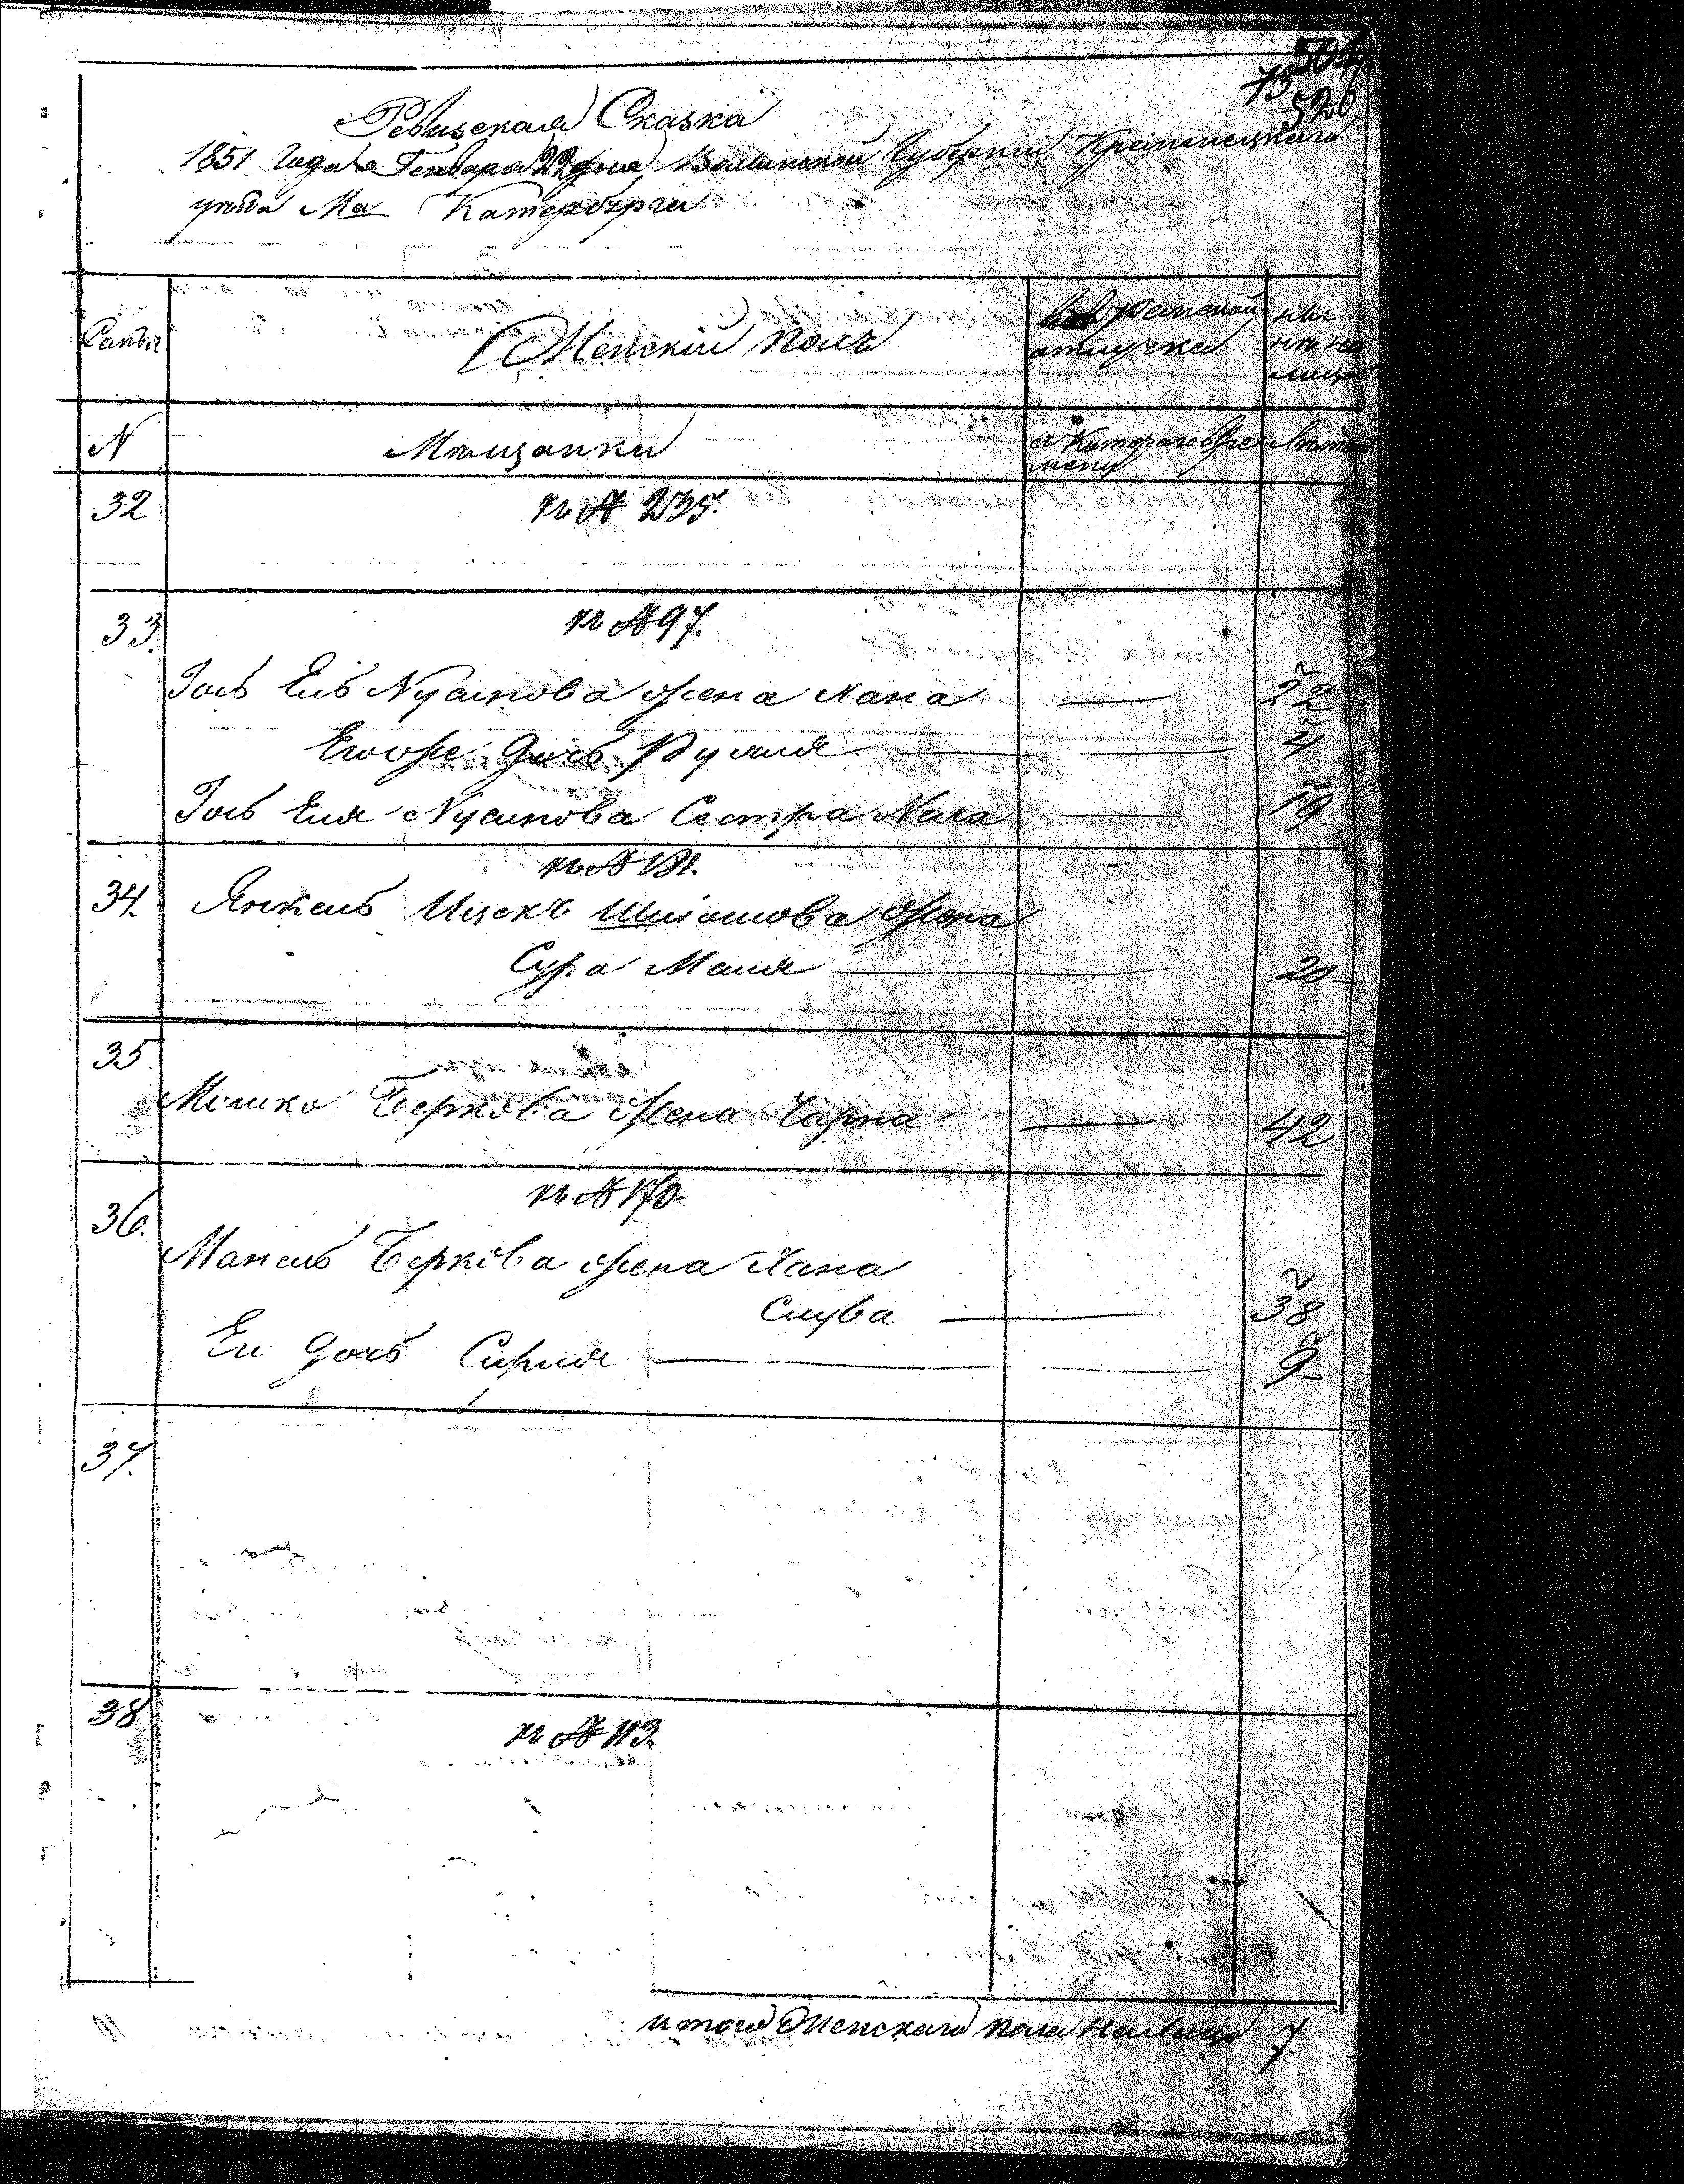 504
73
520
Ревизская Сказка
1851 Года Генваря 22 дня Волынской Губернии Кременецкаго
уезда Ма Катербурга
Семьи
Женский полъ
во временной отлучке
ны не на лицо
N
Мещанки
съ Котораго вре мени
Лета
32
къ № 235.
33.
къ № 97.
Иось Ель Нусинова жена Хана — 22
Егоже дочь Рухля — 4
Иось Еля Нусинова Сестра Неха — 19
къ № 131.
34. Янкель Ицекъ Шиомова жена
Сура Маля — 20
35
Мошко Беркова жена Чарна — 42
къ № 170.
36.
Манель Беркова жена Хана
Слува — 38
Ея дочь Сирля — 9
37.
38
къ № 113.
итого Женскаго пола на лицо 7.